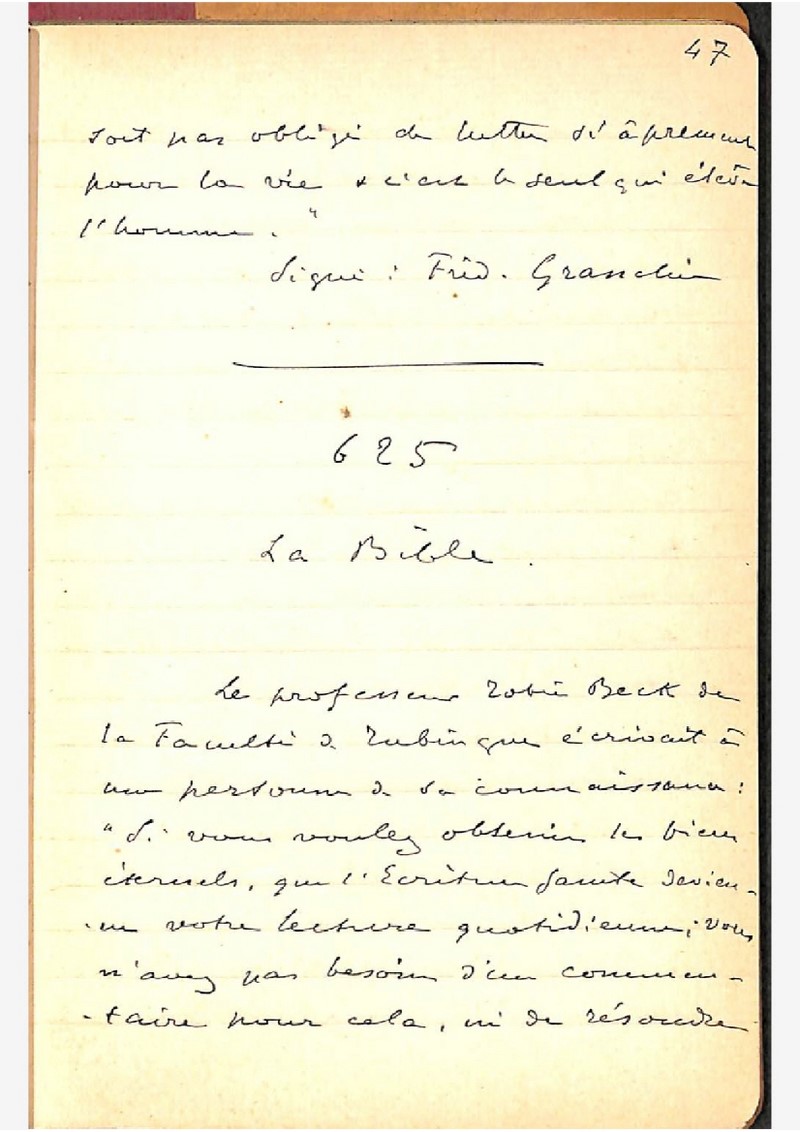 47
soit pas obligé de lutter si âprement
pour la vie & c'est le seul qui élève
l'homme."
Signé : Fréd.
625
La Bible.
Le professeur Beck de
la Faculté de Tubingue écrivait à
une personne de sa connaissance :
"Si vous voulez obtenir les biens
éternels, que l'Ecriture Sainte devien-
-ne votre lecture quotidienne; vous
n'avez pas besoin d'un commen-
-taire pour cela, ni de résoudre